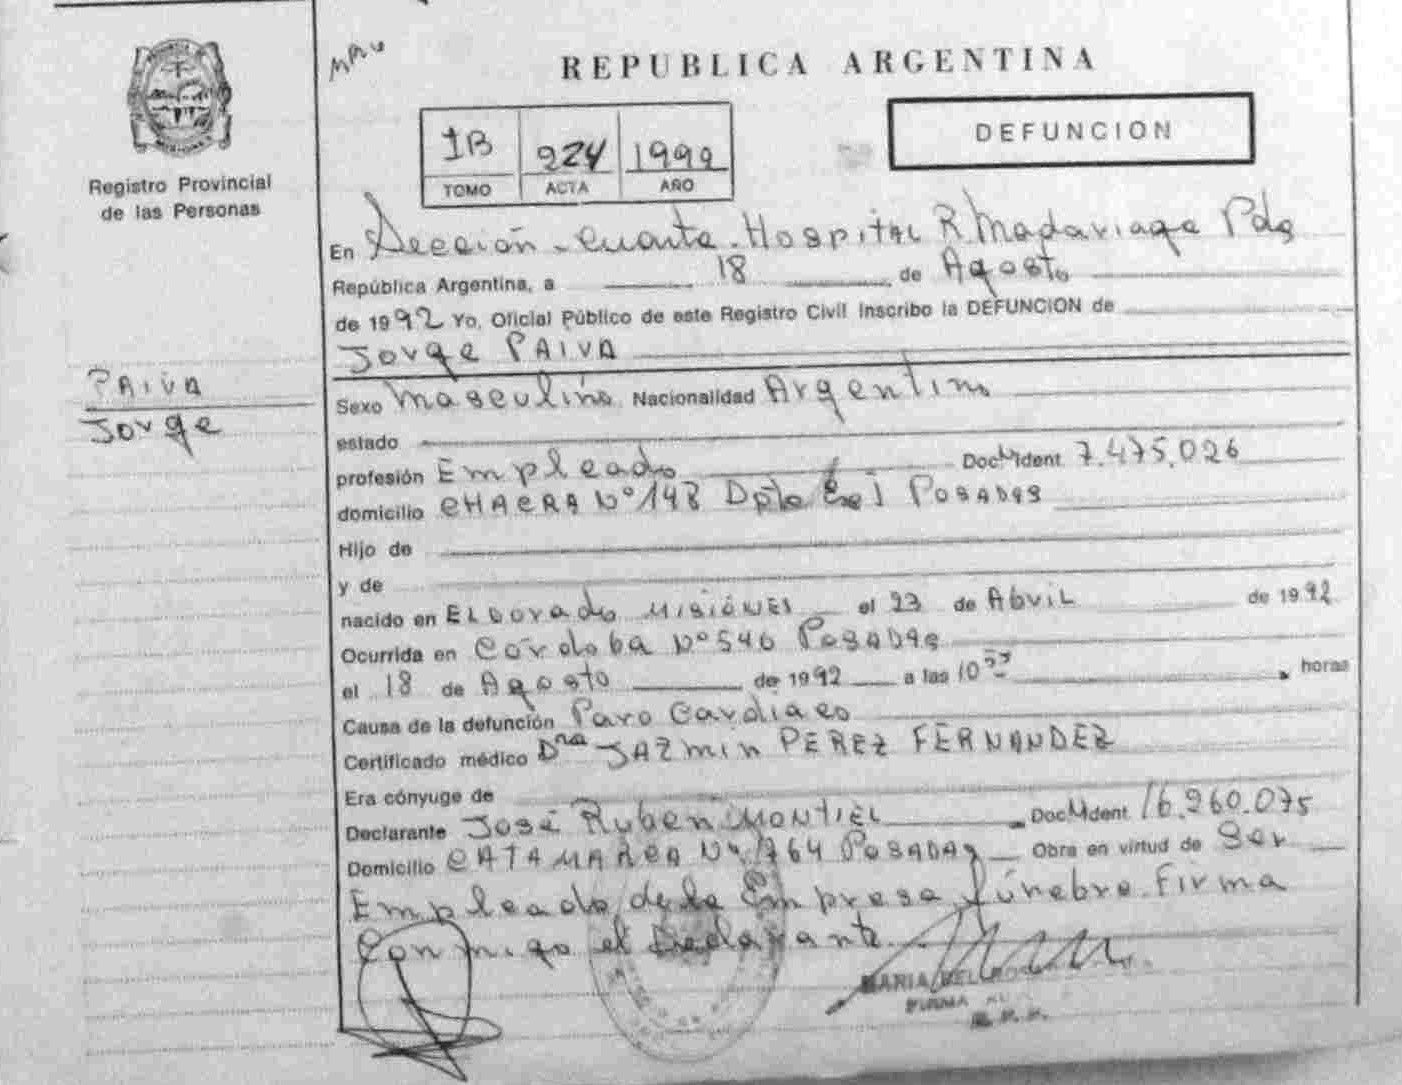 REPUBLICA ARGENTINA
DEFUNCION
1B 224 1992
TOMO ACTA AÑO
Registro Provincial
de las Personas
En Sección Cuarta Hospital R Madariaga Pdas
República Argentina, a 18 de Agosto
de 1992 Yo, Oficial Público de este Registro Civil inscribo la DEFUNCION de
Jorge PAIVA
PAIVA
Jorge
Sexo Masculino Nacionalidad Argentino
estado
profesión Empleado Doc. Ident 7.475.026
domicilio CHACRA Nº 148 Dpto POSADAS
Hijo de
y de
nacido en ELDORADO MISIONES el 23 de Abril de 1992
Ocurrida en Córdoba Nº 546 POSADAS
el 18 de Agosto de 1992 a las 10 horas
Causa de la defunción Paro Cardiaco
Certificado médico Dra JAZMIN PEREZ FERNANDEZ
Era cónyuge de
Declarante José Ruben MONTIEL Doc. Ident 16.260.075
Domicilio CATAMARCA Nº 1764 POSADAS Obra en virtud de Ser
Empleado de la Empresa fúnebre. Firma
Conmigo el Declarante
MARIA DEL
FIRMA
R. P. P.